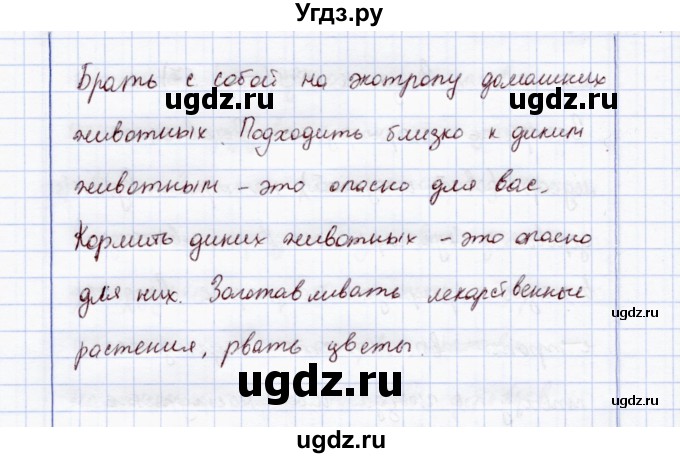 Угдз.ру
Брать с собой на экотропу домашних
ugdz.ru ugdz.ru
животных. Подходить близко к диким
животным – это опасно для вас.
ugdz.ru
Кормить диких животных – это опасно
для них. Заготавливать лекарственные
ugdz.ru
растения, рвать цветы.
ugdz.ru
ugdz.ru
ugdz.ru